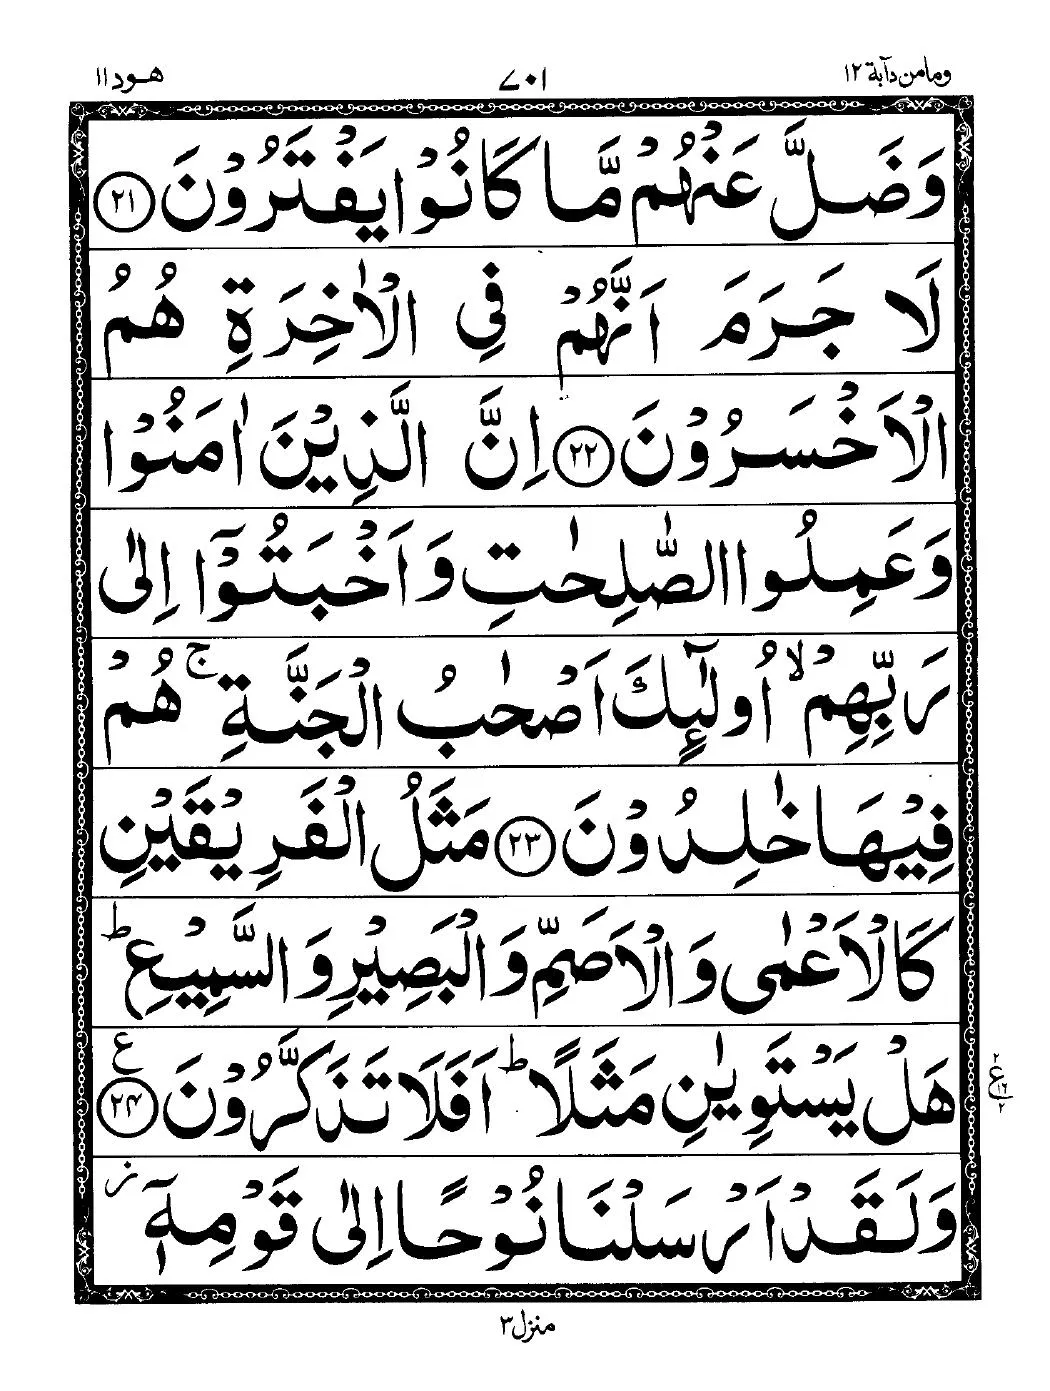 ومامن دآبة ١٢
٧٠١
هود ١١
وَضَلَّ عَنْهُمْ مَّا كَانُوْا يَفْتَرُوْنَ ٢١
لَا جَرَمَ اَنَّهُمْ فِي الْاٰخِرَةِ هُمُ
الْاَخْسَرُوْنَ ٢٢ اِنَّ الَّذِيْنَ اٰمَنُوْا
وَعَمِلُوا الصّٰلِحٰتِ وَاَخْبَتُوْٓا اِلٰى
رَبِّهِمْ ۙ اُولٰٓئِكَ اَصْحٰبُ الْجَنَّةِ ۚ هُمْ
فِيْهَا خٰلِدُوْنَ ٢٣ مَثَلُ الْفَرِيْقَيْنِ
كَالْاَعْمٰى وَالْاَصَمِّ وَالْبَصِيْرِ وَالسَّمِيْعِ ؕ
هَلْ يَسْتَوِيٰنِ مَثَلًا ؕ اَفَلَا تَذَكَّرُوْنَ ٢٤ ع
٢ ع ١٦ ٢
وَلَقَدْ اَرْسَلْنَا نُوْحًا اِلٰى قَوْمِهٖٓ ز
منزل ٣